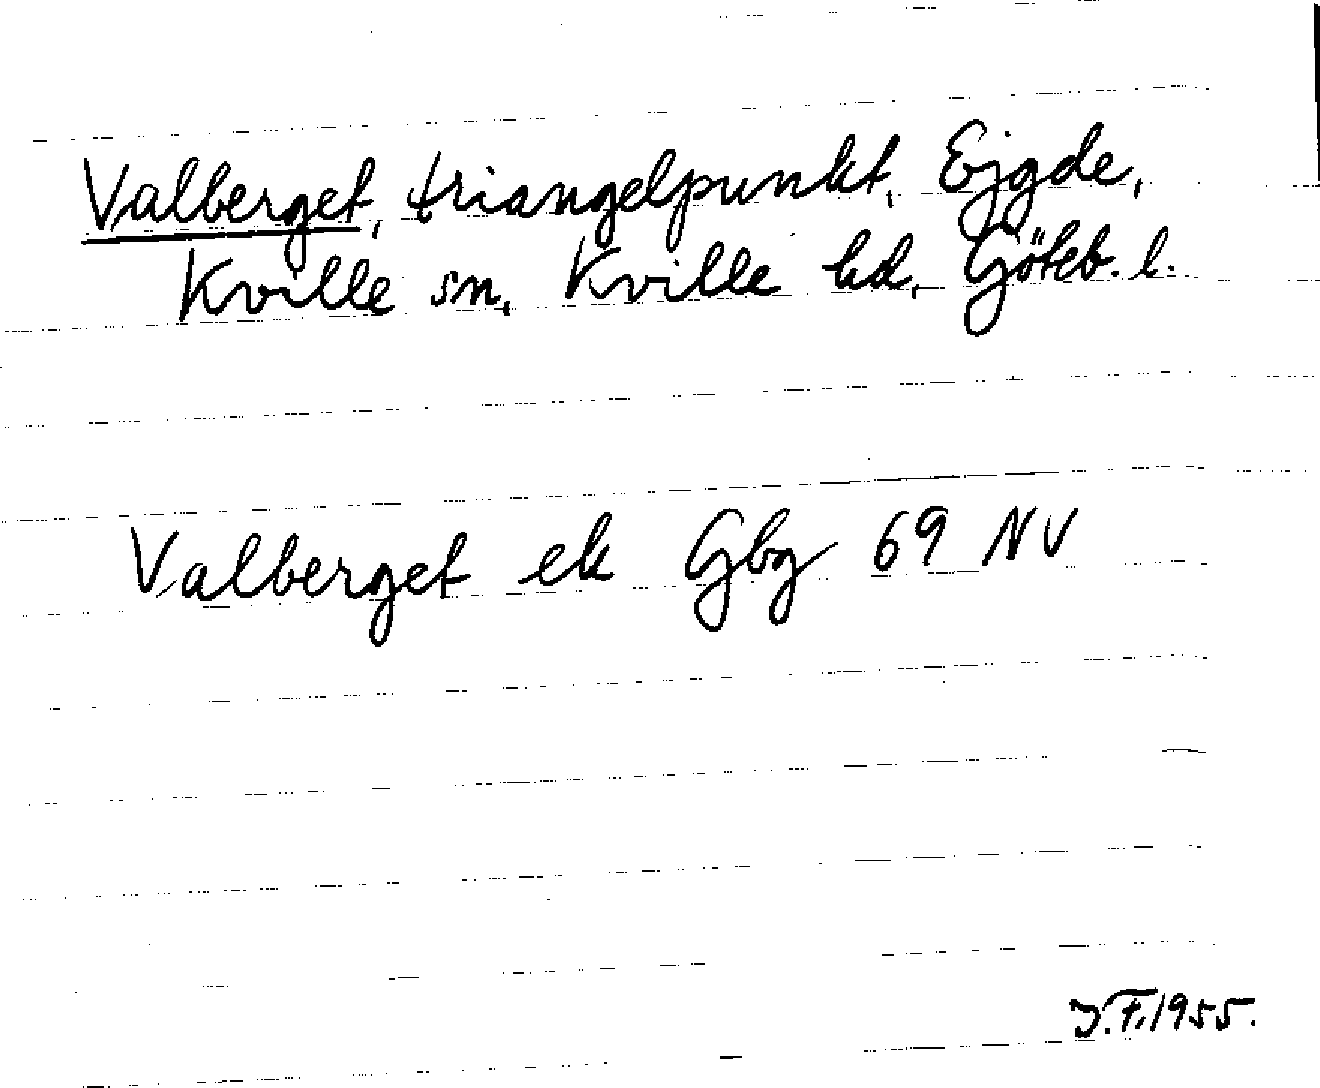 Valberget, triangelpunkt, Ejgde,
Kville sn, Kville hd, Göteb. l.
Valberget ek Gbg 69 NV
J.F. 1955.